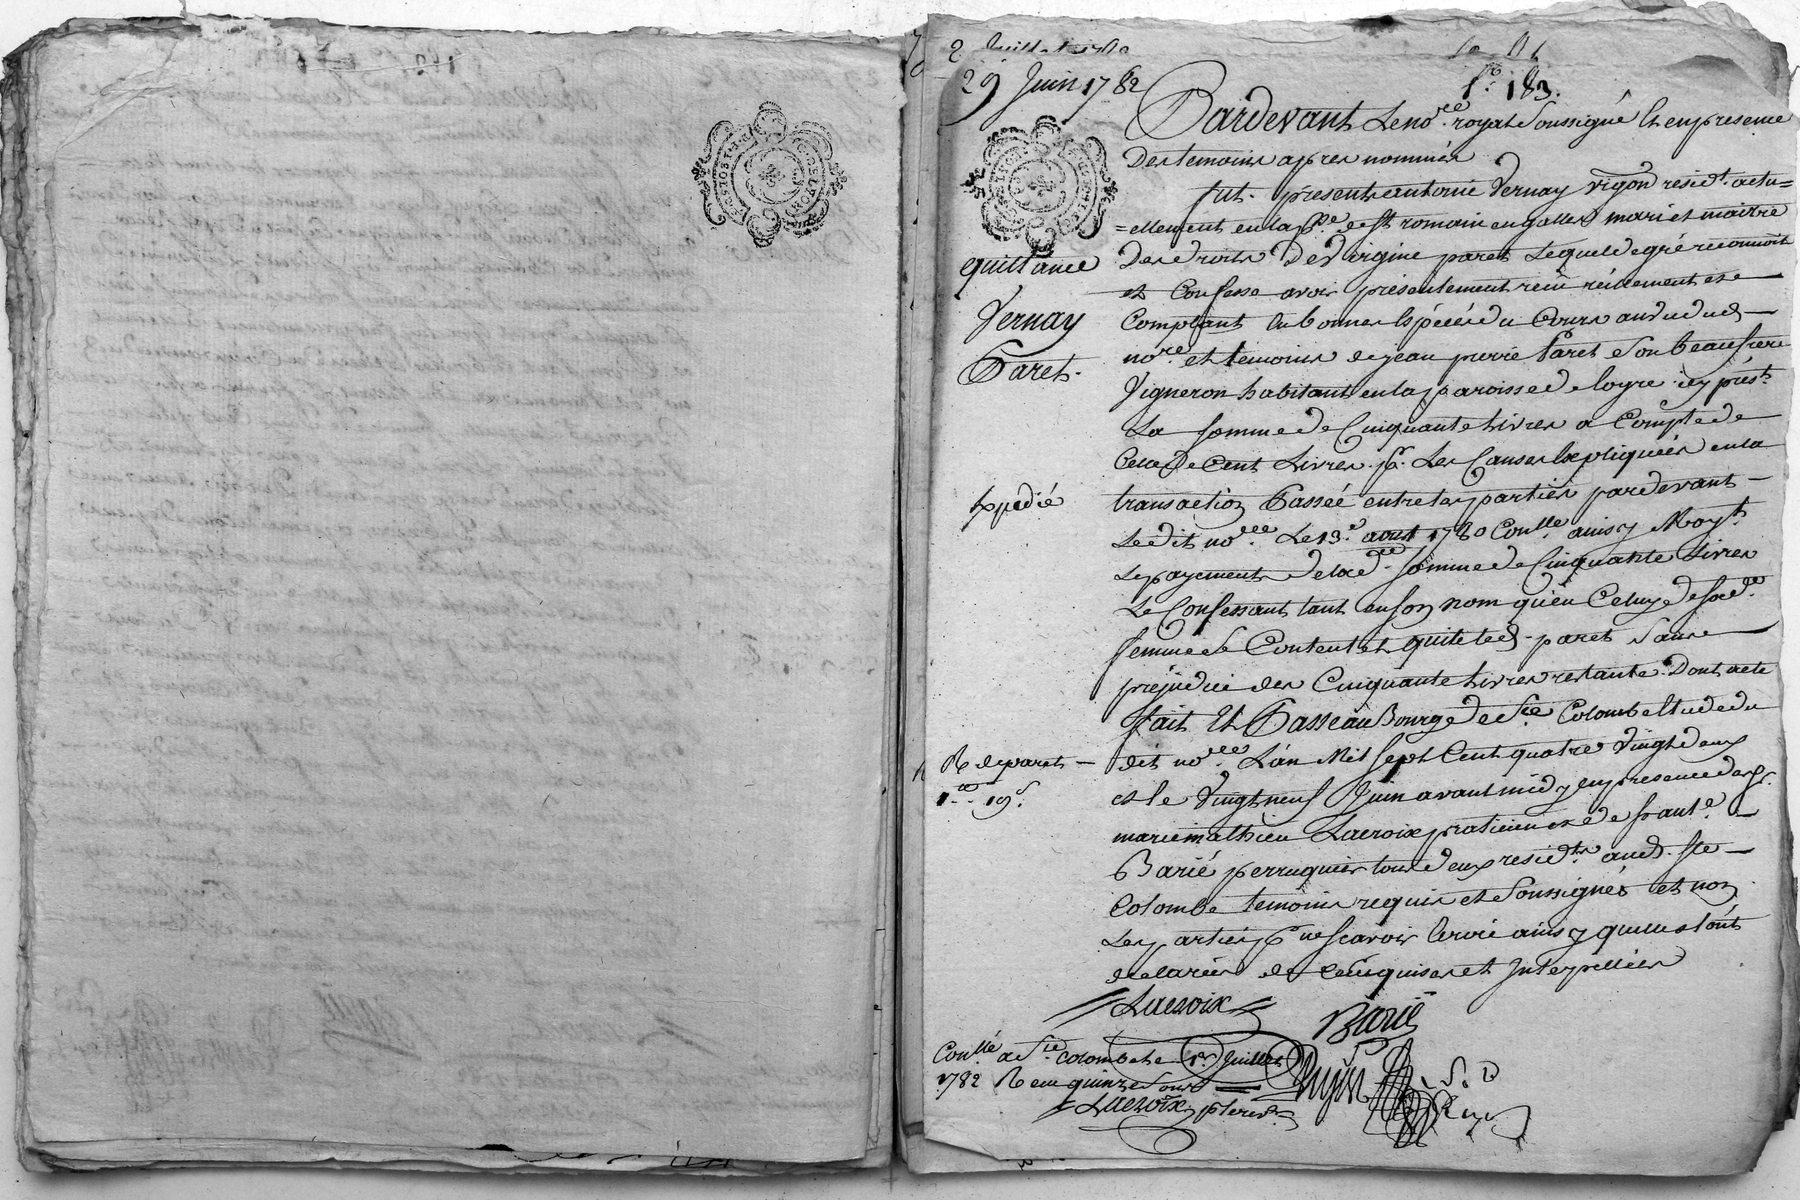 29 Juin 1782
f.° 183.
Pardevant Le no.re royal Soussigné Et en presence
Des temoins apres nommés
fut present antoine Vernay vigon resid.t actu=
=ellement en la p.sse de st romain en galles mari et maitre
Des droits De Virginie paret Lequel de gré reconnoit
et Confesse avoir presentement reçu réellement et
Comptant En bonnes Espéces du Cours au vu dud.
no.re et temoins de jean pierre Paret Son beaufrere
Vigneron habitant en la paroisse de loyre icy pres.t
La Somme de Cinquante Livres a Compte de
Celle De Cent Livres pr. Les Causes Expliquées en la
transaction Passée entre les parties pardevant
Ledit no.re Le 13.e aoust 1780 Con.llé ainsy Moy.t
Le payement De lad.e Somme de Cinquante Livres
Le Confessant tant en son nom qu'en Celuy de sad.e
femme Se Content et quitte led. paret Sans
prejudice des Cinquante Livres restante Dont acte
fait Et Passé au Bourg de S.te Colombe Etude du
dit no.re L'an Mil Sept Cent quatre Vingt deux
et le Vingt neuf Juin avant midy en presence de sr.
marie mathieu Lacroix praticien et de
Barié perruquier tous deux resid.ts aud. Ste
Colombe temoins requis et Soussignés et non
Les parties p.r ne Scavoir Ecrire ainsy quelles l'ont
declarées de ce enquises et Interpellées
quittance
Vernay
Paret.
Expedié
R de paret
1.re 19.s
Lacroix
Barié
Con.llé a S.te Colombe le 1.er Juillet
1782 Reçu quinze Sous
Lacroix